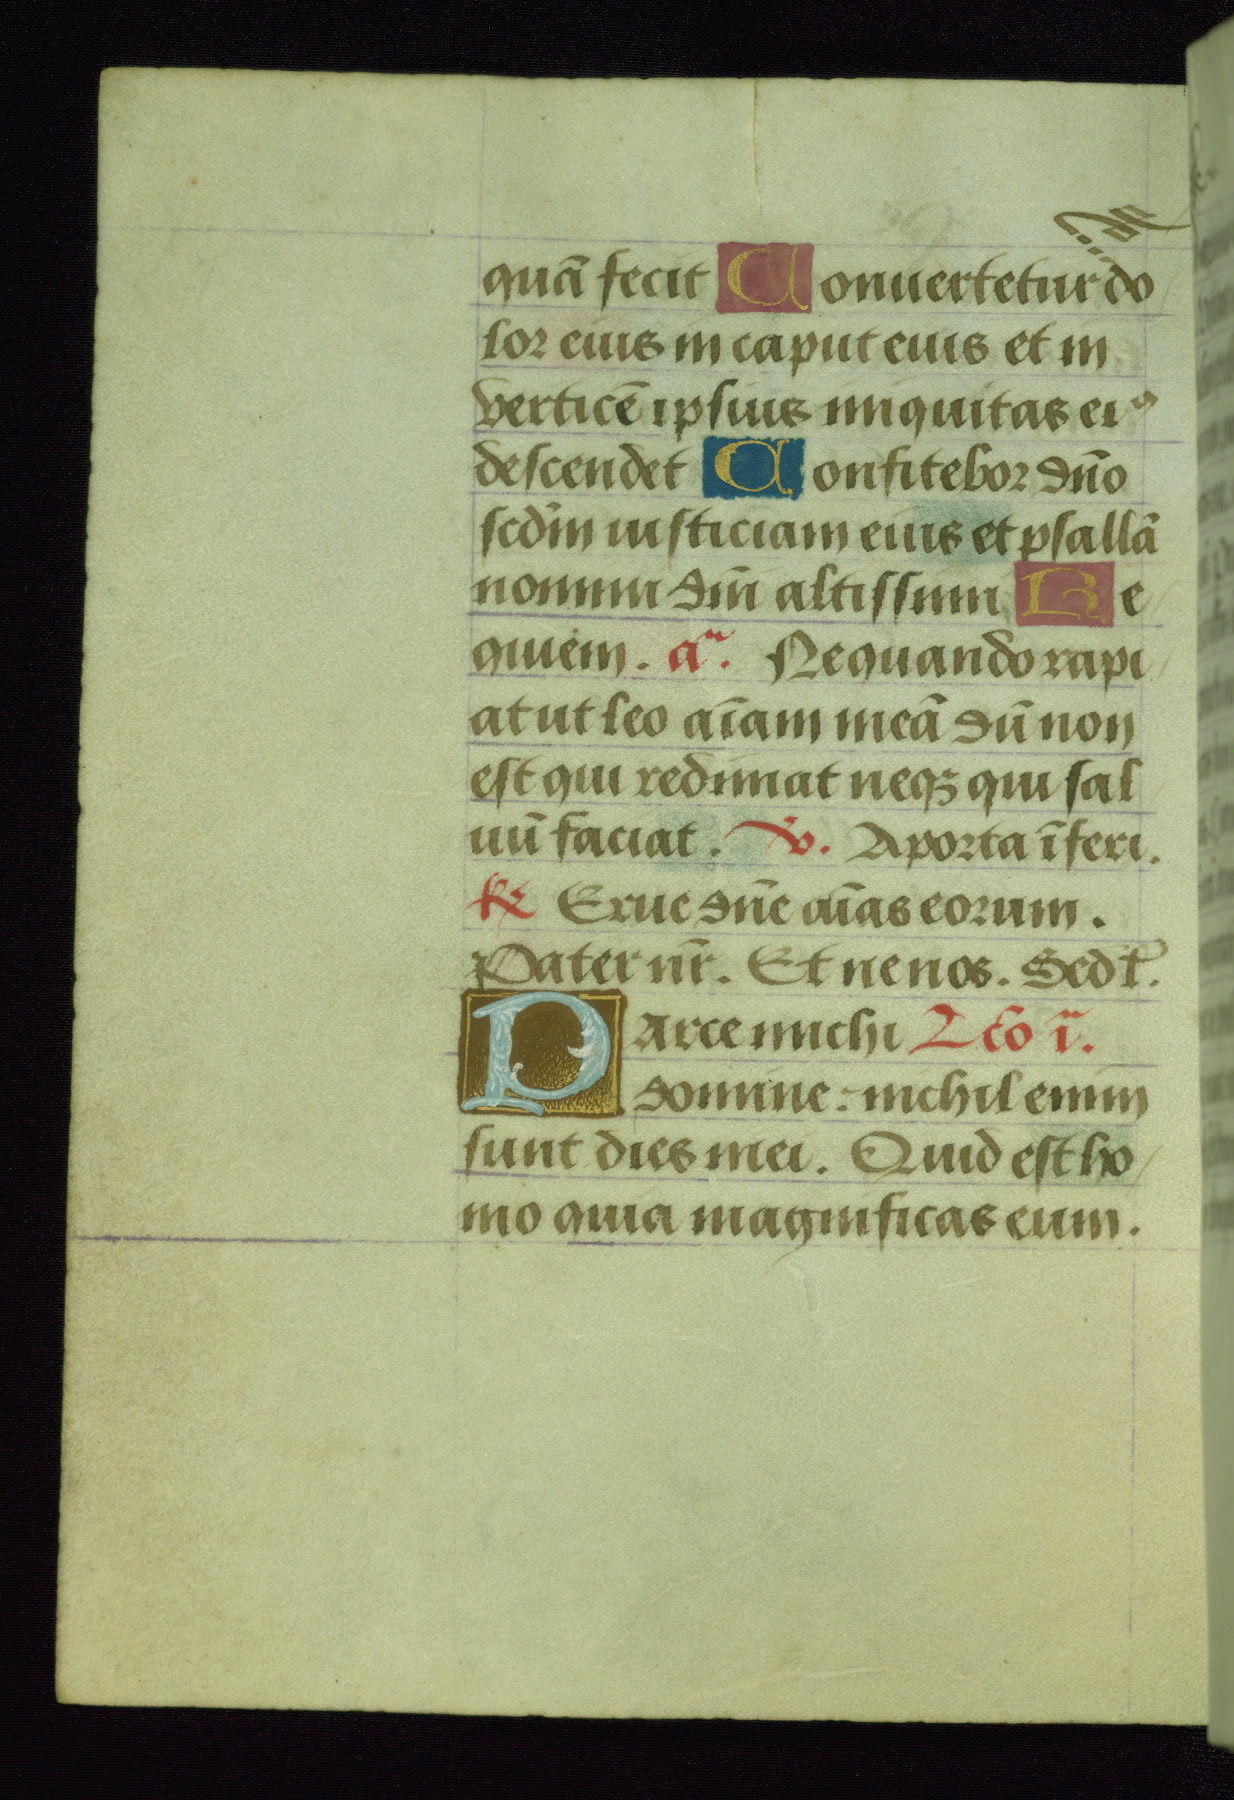 quā fecit Conuertetur do
lor eius in caput eius et in
verticē ipsius iniquitas eiꝰ
descendet Confitebor dn̄o
scdm̄ iusticiam eius et psallā
nomini dn̄i altissimi Re
quiem. an̄. Ne quando rapi
at ut leo aīam meā dū non
est qui redimat neqꝫ qui sal
uū faciat. v. A porta īferi.
℟ Erue dn̄e aīas eorum.
Pater nr̄. Et ne nos. Sed l.
Parce michi Lc̄o ia.
domine: nichil enim
sunt dies mei. Quid est ho
mo quia magnificas eum.